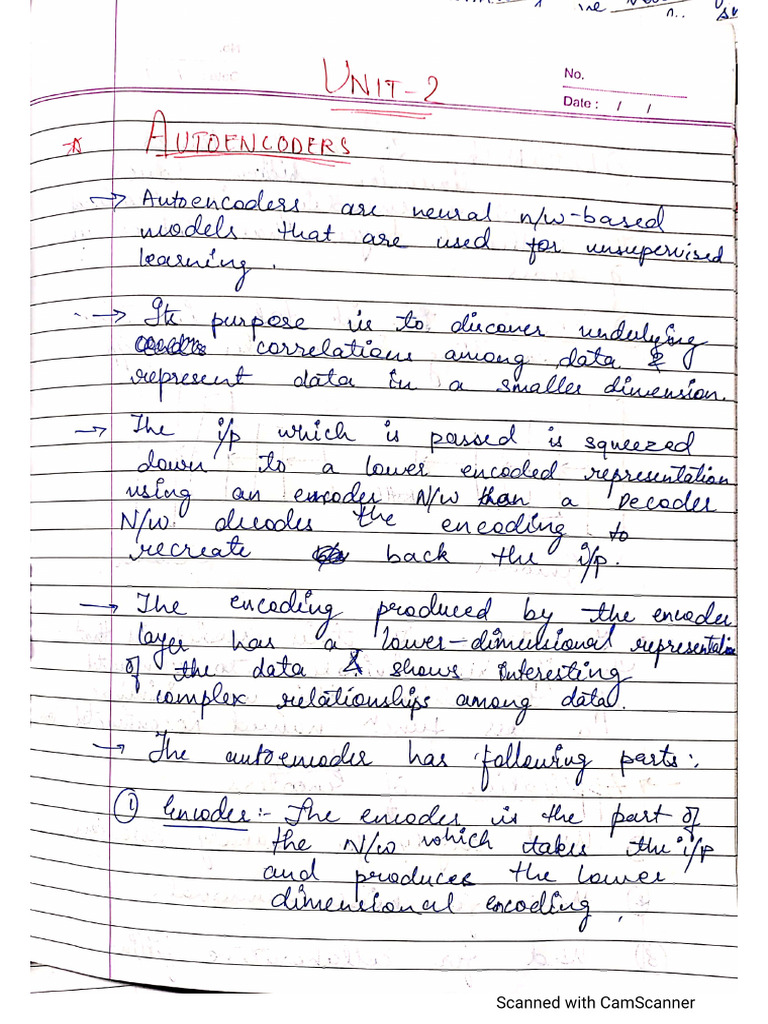 UNIT-2
No.
Date : / /
AUTOENCODERS
→ Autoencoders are neural n/w-based
models that are used for unsupervised
learning.
→ Its purpose is to discover underlying
correlations among data &
represent data in a smaller dimension.
→ The i/p which is passed is squeezed
down to a lower encoded representation
using an encoder N/w than a Decoder
N/w decodes the encoding to
recreate back the i/p.
→ The encoding produced by the encoder
layer has a lower-dimensional representation
of the data & shows interesting
complex relationships among data.
→ The autoencoder has following parts:
① Encoder:- The encoder is the part of
the N/w which takes the i/p
and produces the lower
dimensional encoding.
Scanned with CamScanner